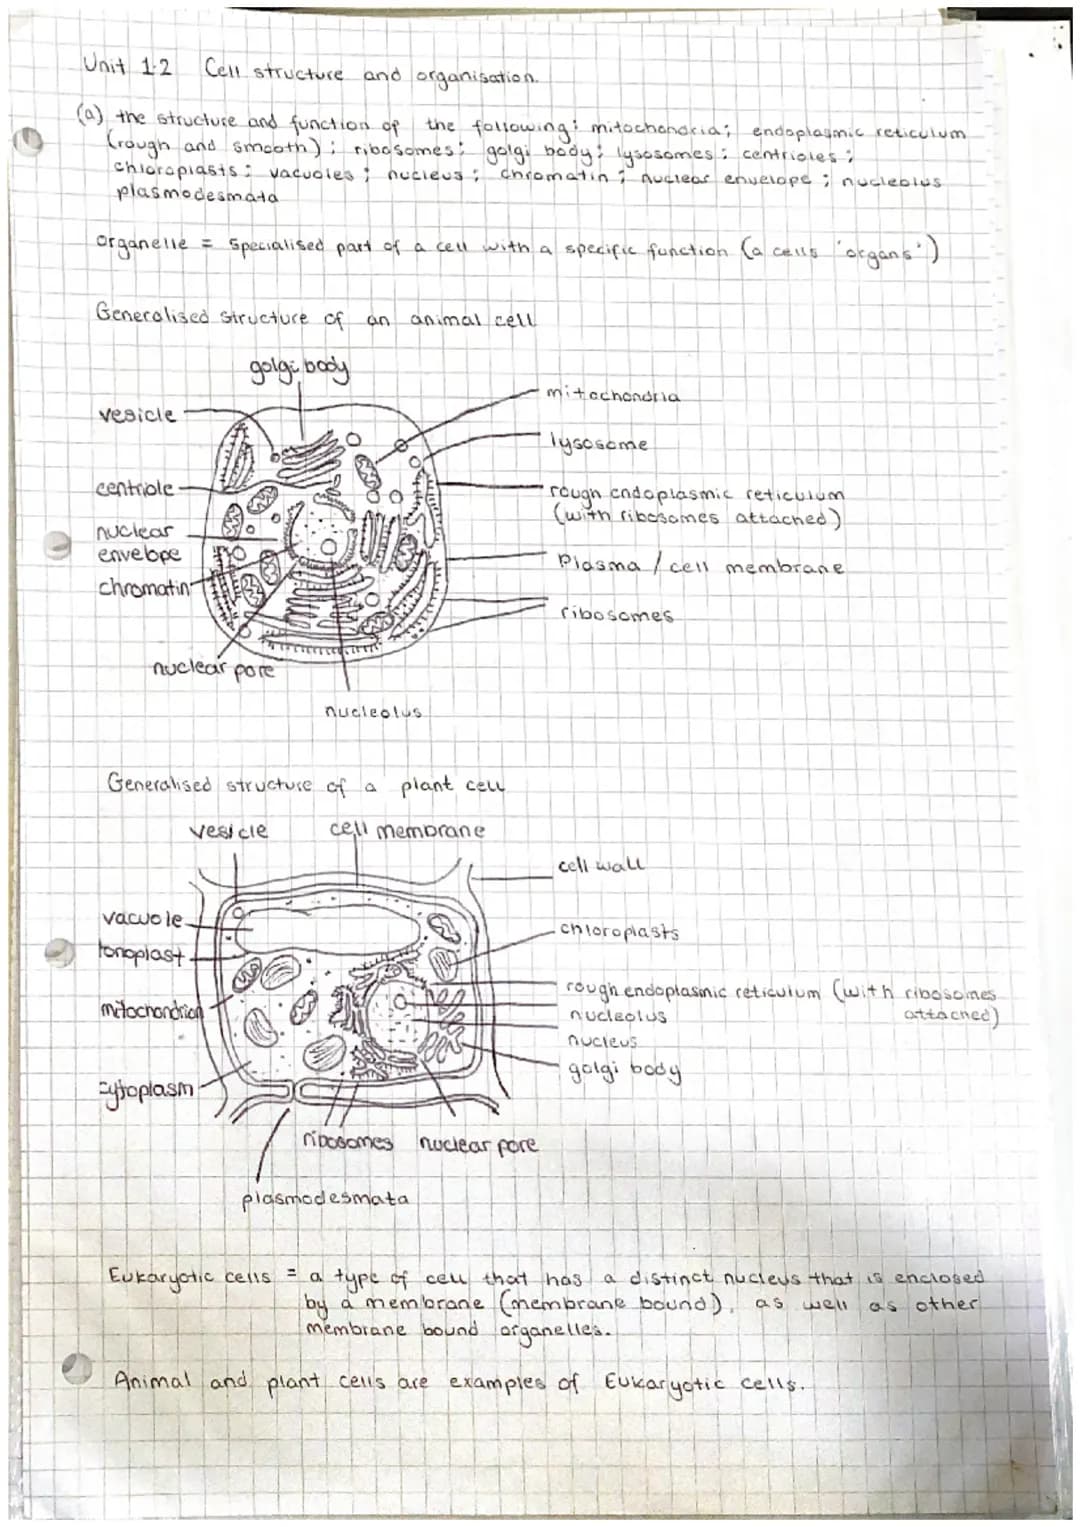 Unit 1.2 Cell structure and organisation.
(a) the structure and function of the following: mitochondria; endoplasmic reticulum
(rough and smooth); ribosomes; golgi body; lysosomes; centrioles;
chloroplasts; vacuoles; nucleus; chromatin; nuclear envelope; nucleolus
plasmodesmata
organelle = specialised part of a cell with a specific function (a cells 'organs')
Generalised structure of an animal cell
golgi body
mitochondria
vesicle
lysosome
centriole
rough endoplasmic reticulum
(with ribosomes attached)
nuclear
envelope
Plasma / cell membrane
chromatin
ribosomes
nuclear pore
nucleolus
Generalised structure of a plant cell
vesicle
cell membrane
cell wall
vacuole
chloroplasts
tonoplast
rough endoplasmic reticulum (with ribosomes
attached)
mitochondrion
nucleolus
nucleus
golgi body
cytoplasm
ribosomes
nuclear pore
plasmodesmata
Eukaryotic cells = a type of cell that has a distinct nucleus that is enclosed
by a membrane (membrane bound), as well as other
membrane bound organelles.
Animal and plant cells are examples of Eukaryotic cells.